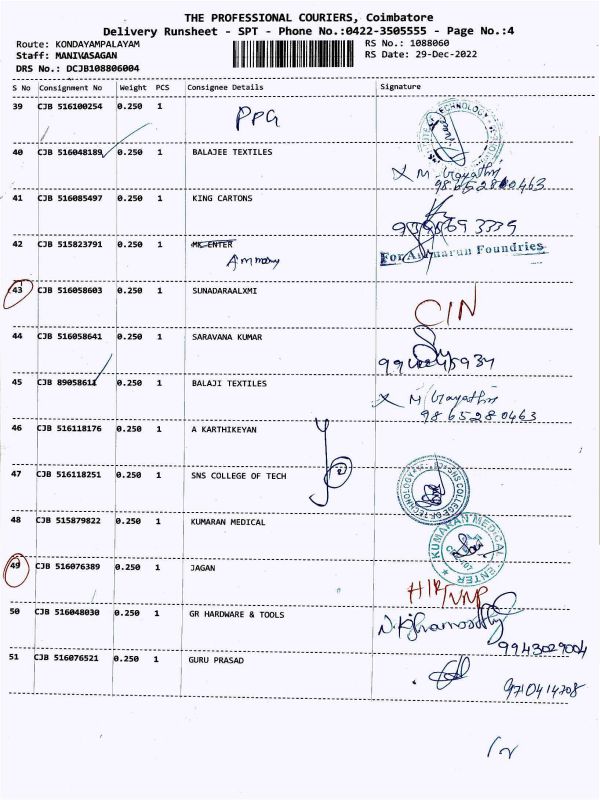 THE PROFESSIONAL COURIERS, Coimbatore
Delivery Runsheet - SPT - Phone No.:0422-3505555 - Page No.:4
Route: KONDAYAMPALAYAM RS No.: 1088060
Staff: MANIVASAGAN RS Date: 29-Dec-2022
DRS No.: DCJB108806004
S No Consignment No Weight PCS Consignee Details Signature
39 CJB 516100254 0.250 1 PPG
40 CJB 516048189 0.250 1 BALAJEE TEXTILES
X M. Gayathri
9865280463
41 CJB 516085497 0.250 1 KING CARTONS
3339
42 CJB 515823791 0.250 1 MK ENTER
Ammarun
For Ammarun Foundries
43 CJB 516058603 0.250 1 SUNADARAALXMI
CIN
44 CJB 516058641 0.250 1 SARAVANA KUMAR
45 CJB 89058611 0.250 1 BALAJI TEXTILES
X M. Gayathri
9865280463
46 CJB 516118176 0.250 1 A KARTHIKEYAN
47 CJB 516118251 0.250 1 SNS COLLEGE OF TECH
SNS COLLEGE OF TECHNOLOGY
48 CJB 515879822 0.250 1 KUMARAN MEDICAL
KUMARAN MEDICAL CENTER
49 CJB 516076389 0.250 1 JAGAN
50 CJB 516048030 0.250 1 GR HARDWARE & TOOLS
9943029004
51 CJB 516076521 0.250 1 GURU PRASAD
9710414708